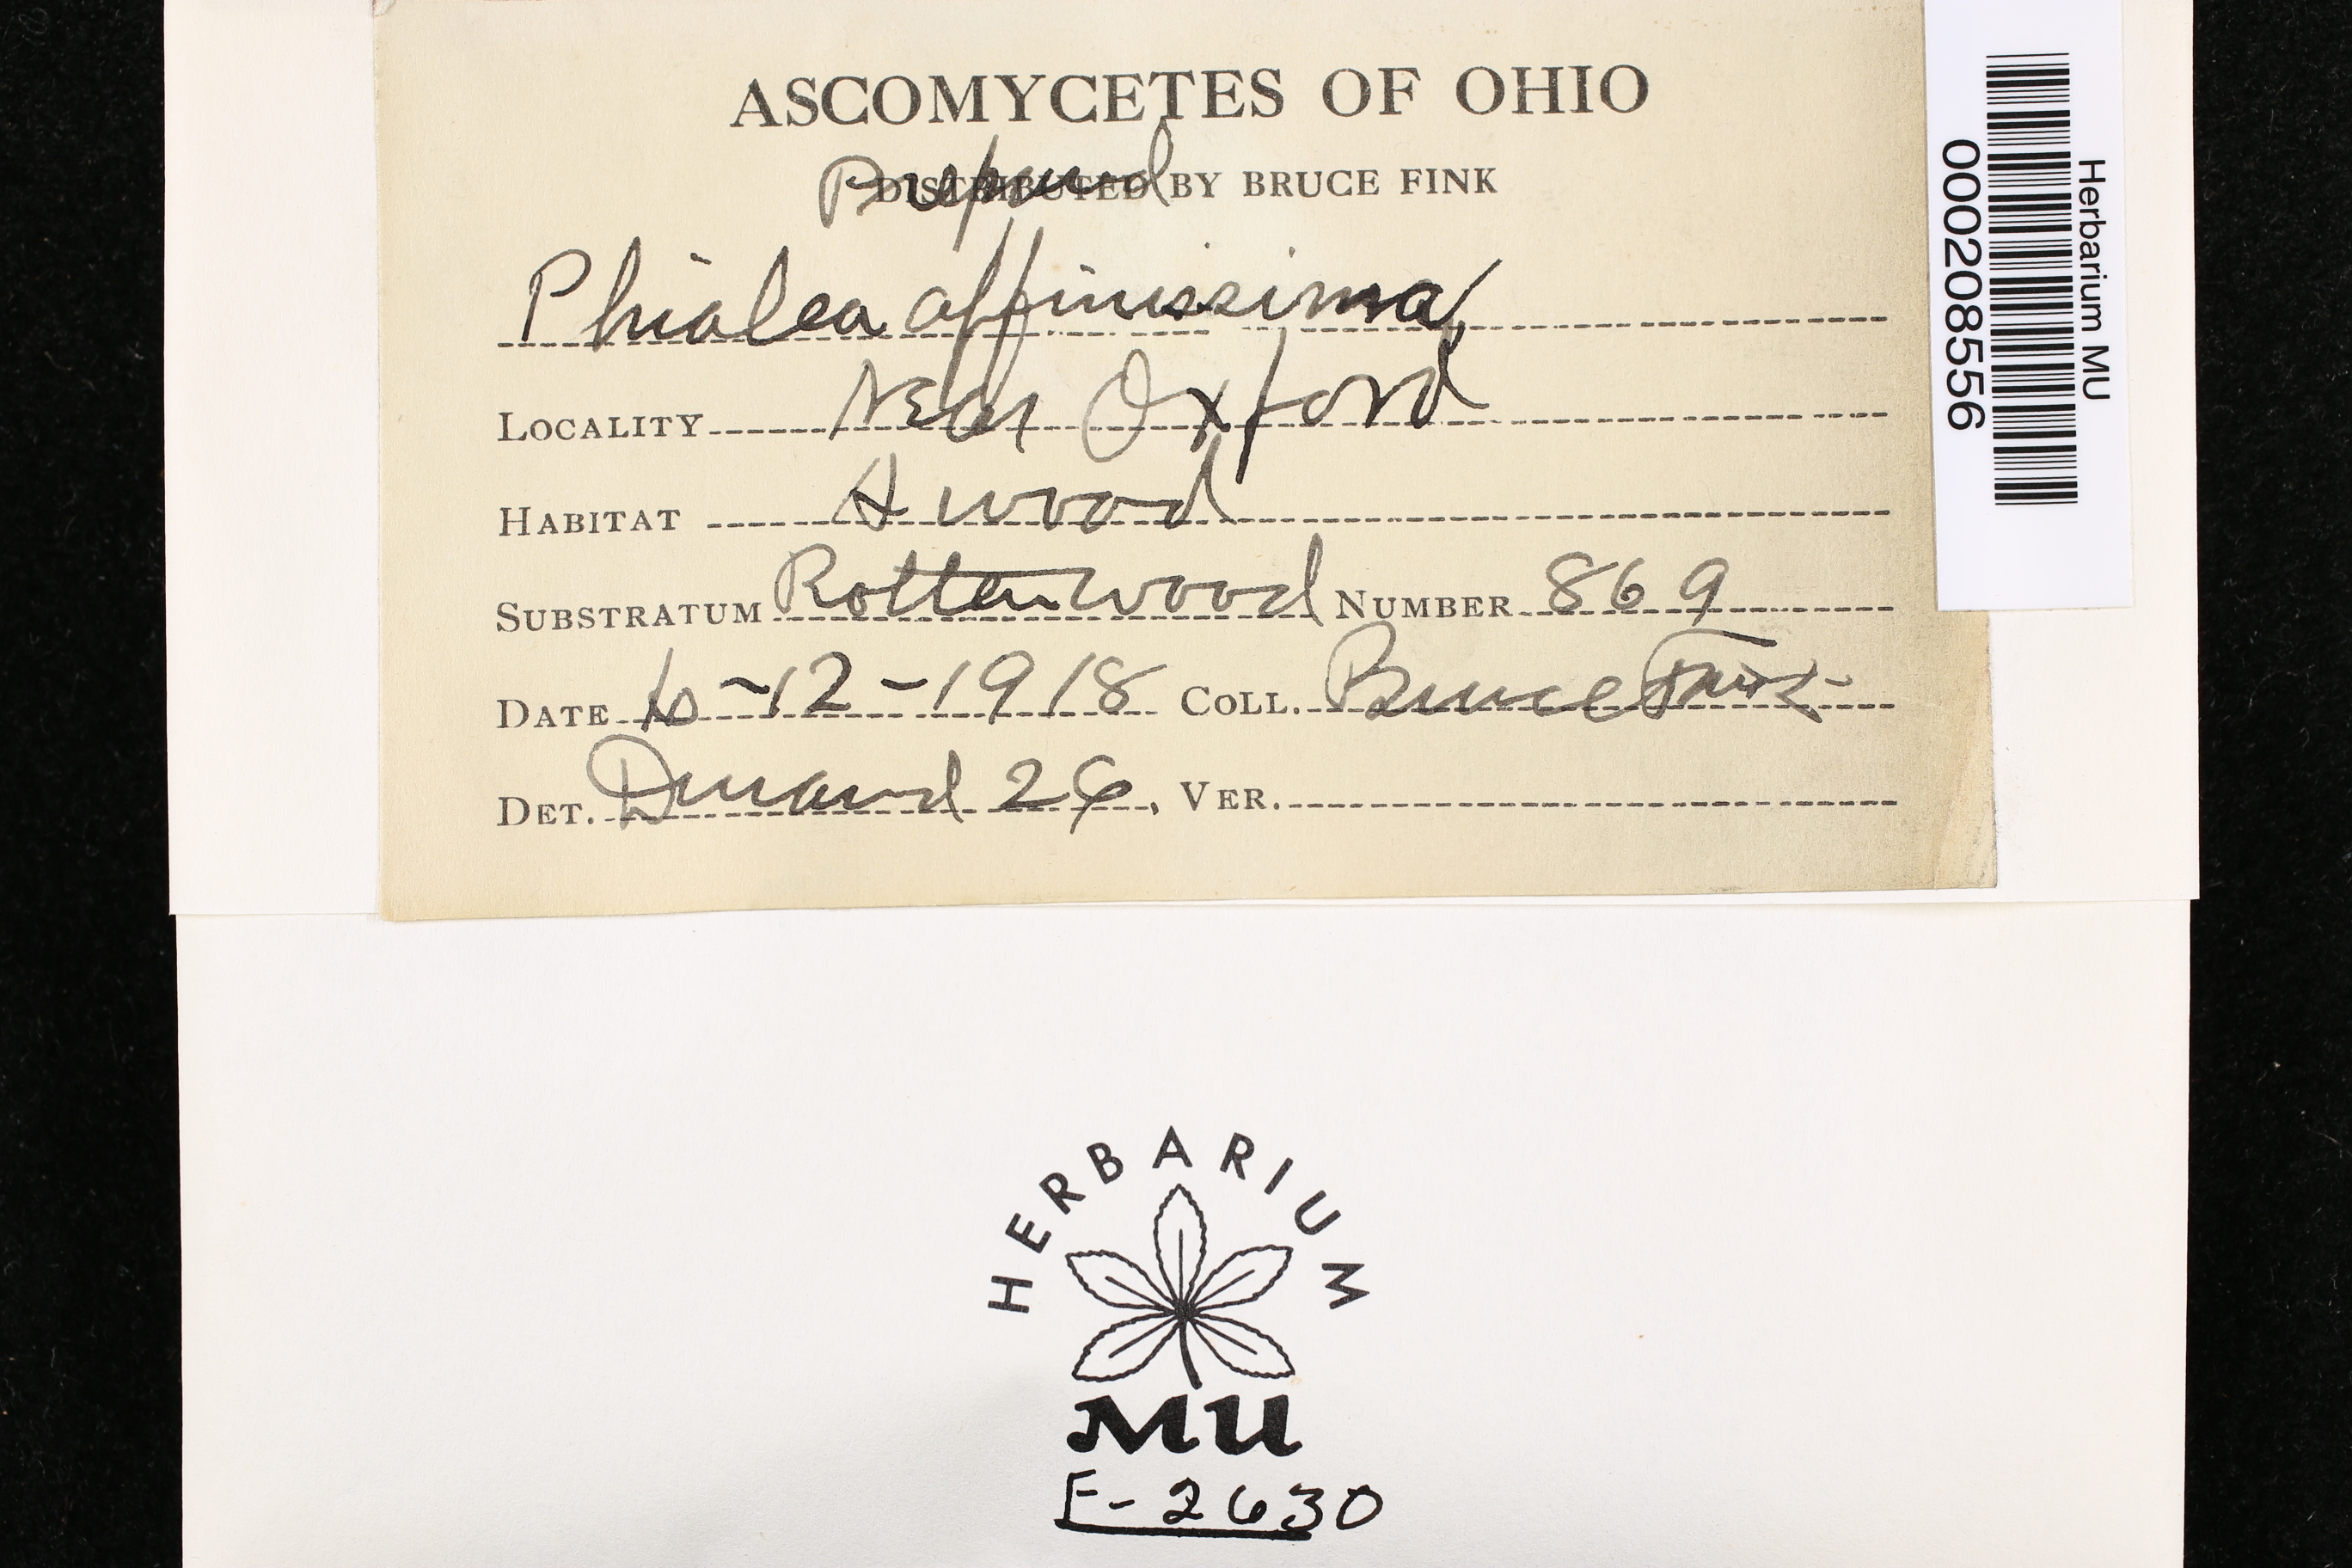 ASCOMYCETES OF OHIO
Prepared
DISTRIBUTED BY BRUCE FINK
Phialea affinissima
LOCALITY Near Oxford
HABITAT A wood
SUBSTRATUM Rotten wood NUMBER 869
DATE 10-12-1918 COLL. Bruce Fink
DET. Durand 26. VER.
Herbarium MU
000208556
HERBARIUM
MU
F-2630